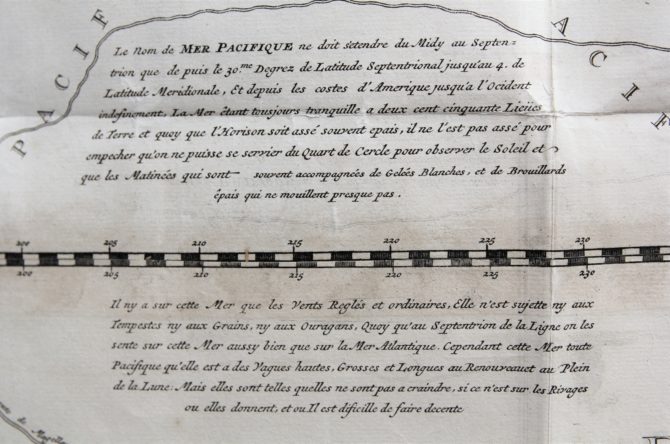 PACIF
ACIF
Le Nom de MER PACIFIQUE ne doit s'etendre du Midy au Septen=
trion que de puis le 30.me Degrez de Latitude Septentrional jusqu'au 4. de
Latitude Meridionale, Et depuis les costes d'Amerique jusqu'a l'Ocident
indefiniment, La Mer étant tousjours tranquille a deux cent cinquante Liëües
de Terre et quoy que l'Horison soit assé souvent epais, il ne l'est pas assé pour
empecher qu'on ne puisse se servier du Quart de Cercle pour observer le Soleil et
que les Matinées qui sont souvent accompagnées de Gelées Blanches, et de Brouillards
épais qui ne mouillent presque pas.
200 205 210 215 220 225 230
200 205 210 215 220 225 230
Il ny a sur cette Mer que les Vents Reglés et ordinaires, Elle n'est sujette ny aux
Tempestes ny aux Grains, ny aux Ouragans, Quoy qu'au Septentrion de la Ligne on les
sente sur cette Mer aussy bien que sur la Mer Atlantique. Cependant cette Mer toute
Pacifique qu'elle est a des Vagues hautes, Grosses et Longues au Renouveauet au Plein
de la Lune. Mais elles sont telles quelles ne sont pas a craindre, si ce n'est sur les Rivages
ou elles donnent, et ou Il est dificille de faire decente